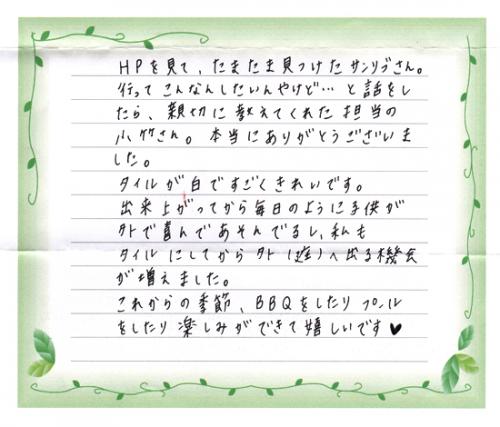 HPを見て、たまたま見つけたサンリブさん。
行ってこんなんしたいんやけど…と話をし
たら、親切に教えてくれた担当の
小竹さん。本当にありがとうございま
した。
タイルが白ですごくきれいです。
出来上がってから毎日のように子供が
外で喜んであそんでるし、私も
タイルにしてから外(庭)へ出る機会
が増えました。
これからの季節、BBQをしたりプール
をしたり楽しみができて嬉しいです♥